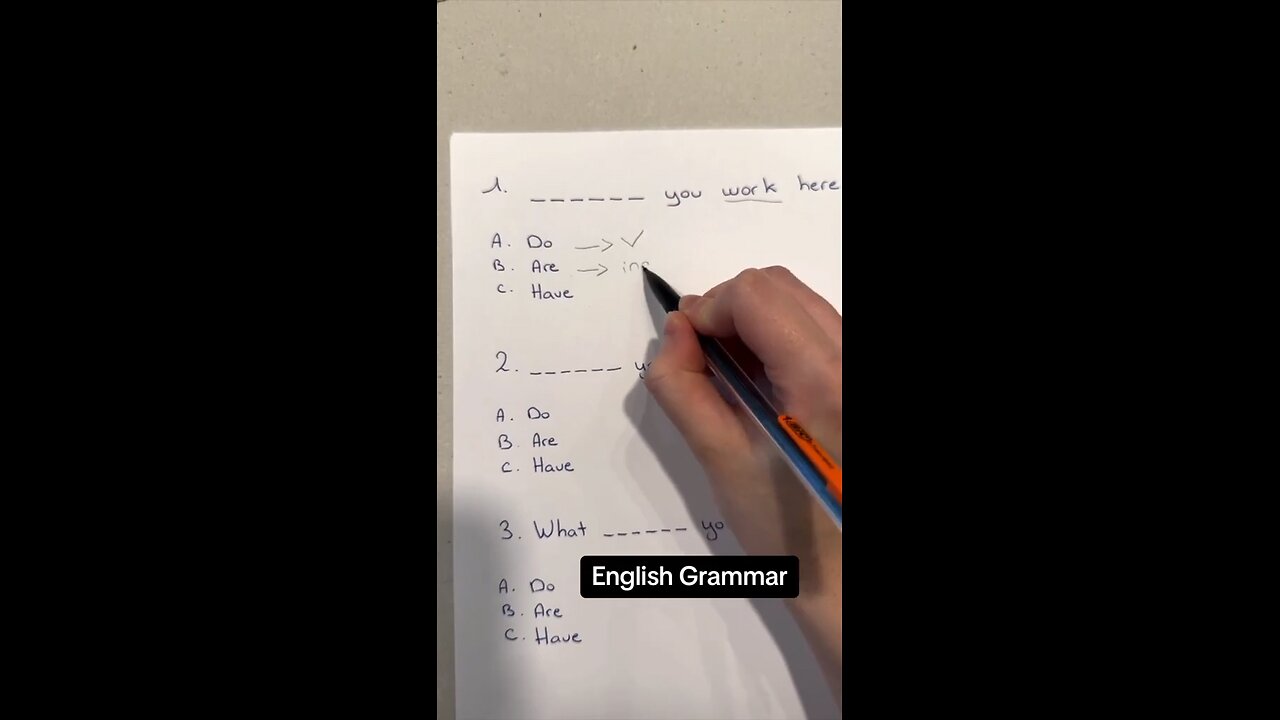 1. ______ you work here
A. Do → ✓
B. Are → ing
C. Have
2. ______ yo
A. Do
B. Are
C. Have
3. What ______ yo
English Grammar
A. Do
B. Are
C. Have